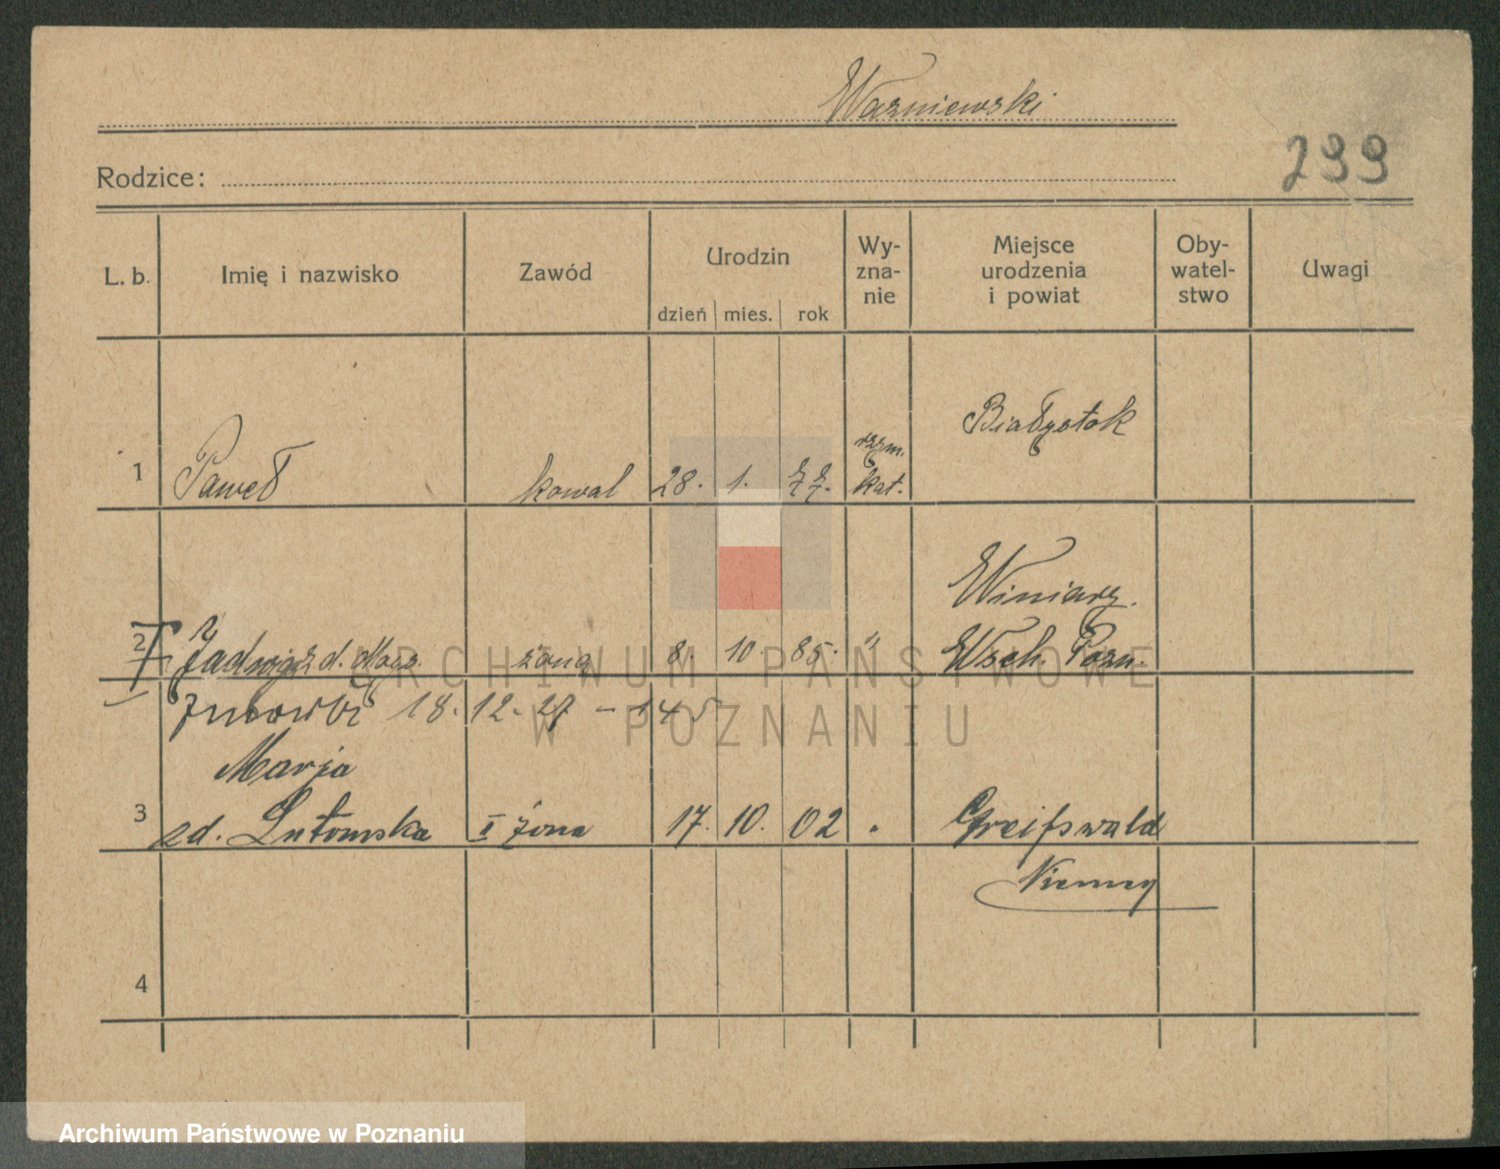 Wazniewski
299
Rodzice:
L. b.
Imię i nazwisko
Zawód
Urodzin
dzień mies. rok
Wy-
zna-
nie
Miejsce
urodzenia
i powiat
Oby-
watel-
stwo
Uwagi
Białystok
rzym.
1 Paweł kowal 28. 1. 77. kat.
Winiary.
2 Jadwiga z d. żona 8. 10 85. " Wsch. Pozn.
18. 12. 27 - 145
Marja
3 zd. Lutomska II żona 17. 10. 02 Greifswald
Niemcy
4
ARCHIWUM PAŃSTWOWE
W POZNANIU
Archiwum Państwowe w Poznaniu